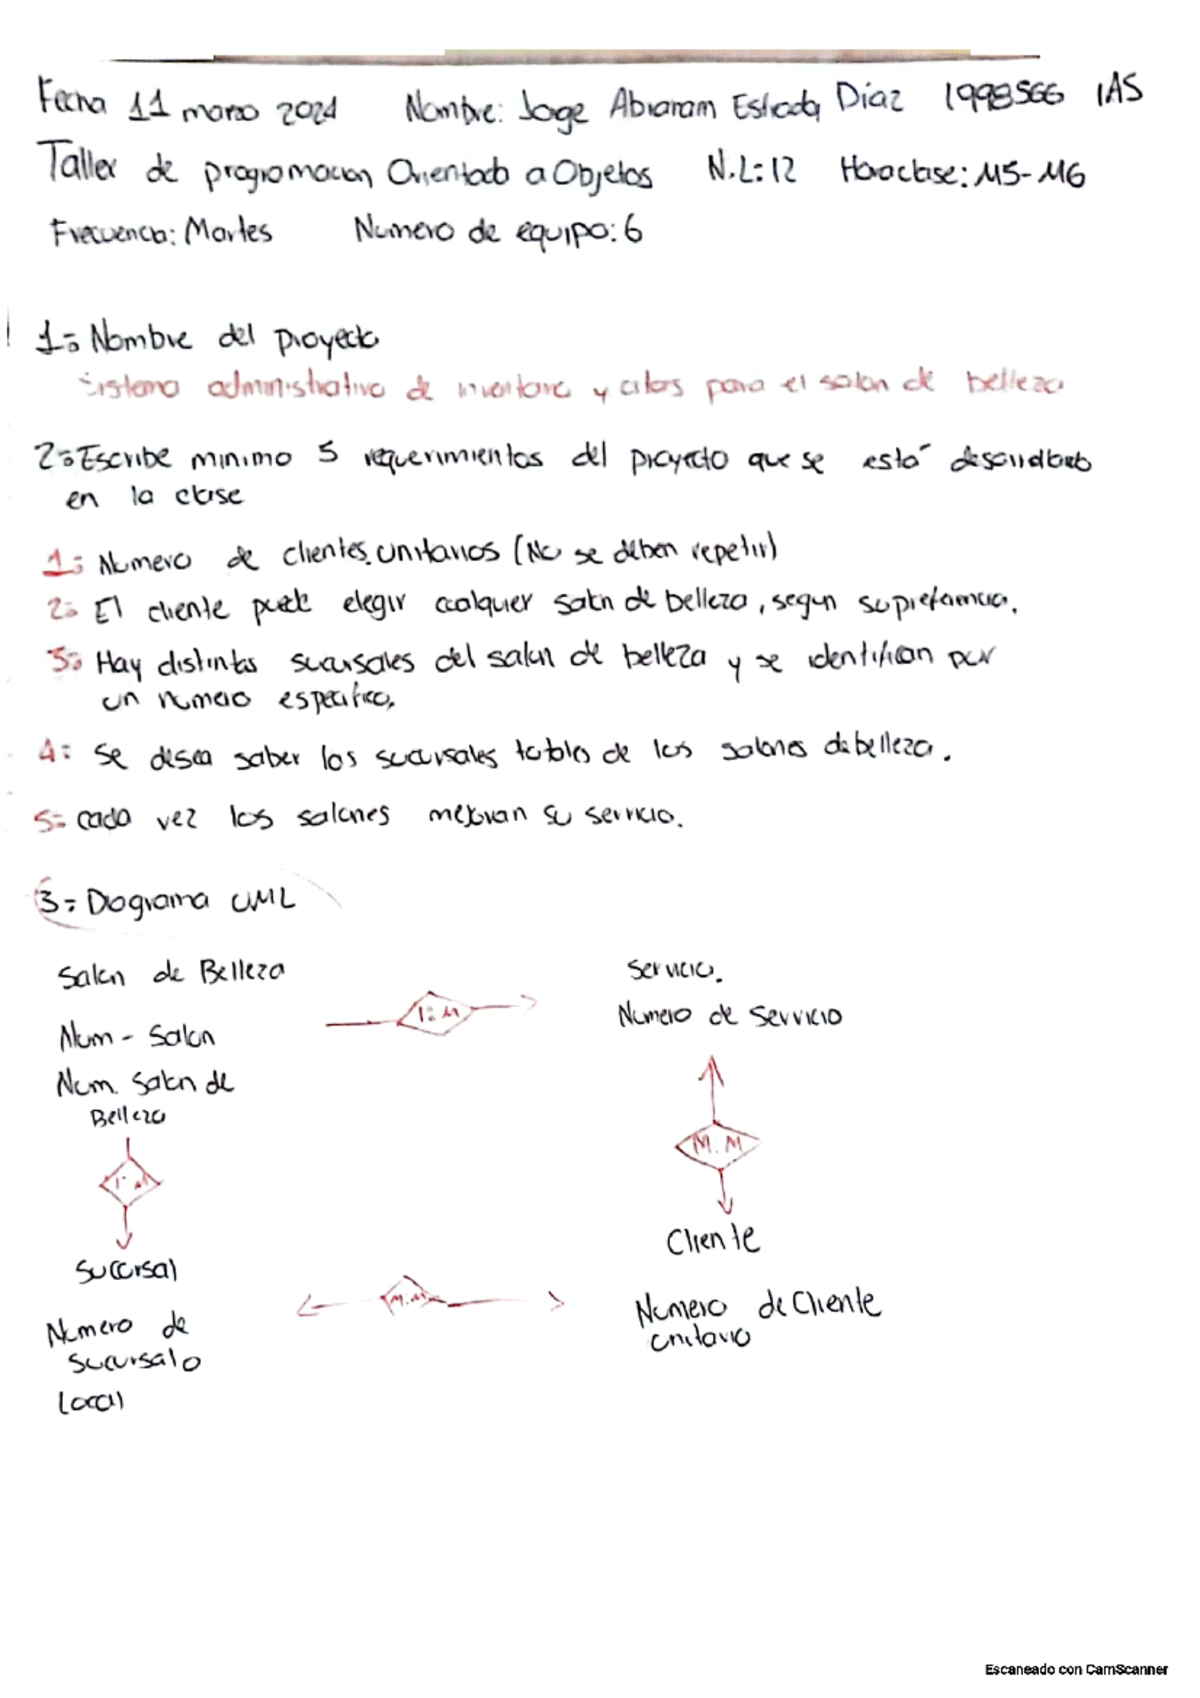 Fecha 11 marzo 2024 Nombre: Jorge Abraram Estrada Díaz 1998566 IAS
Taller de programacion Orientado a Objetos N.L:12 Hora clase: M5-M6
Frecuencia: Martes Numero de equipo: 6
1= Nombre del proyecto
Sistema administrativo de inventario y citas para el salon de belleza
2= Escribe minimo 5 requerimientos del proyecto que se está desarrollando
en la clase
1= Numero de clientes unitarios (No se deben repetir)
2= El cliente puede elegir cualquier salon de belleza, segun su preferencia.
3= Hay distintas sucursales del salon de belleza y se identifican por
un numero especifico,
4= Se desea saber las sucursales totales de los salones de belleza.
5= cada vez los salones mejoran su servicio.
3= Diagrama UML
Salon de Belleza Servicio.
1:M
Num - Salon Numero de Servicio
Num. Salon de
Belleza
M:M
1:M
Cliente
Sucursal
M:M
Numero de Cliente
Numero de unitario
Sucursal o
Local
Escaneado con CamScanner